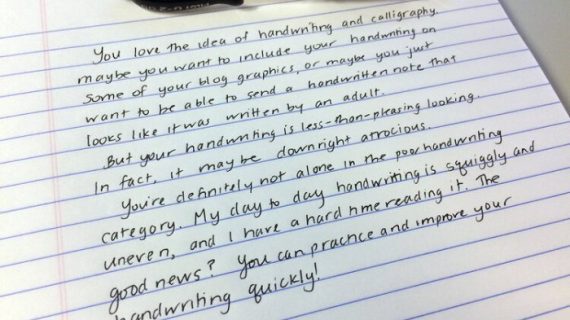 You love the idea of handwriting and calligraphy.
maybe you want to include your handwriting on
some of your blog graphics, or maybe you just
want to be able to send a handwritten note that
looks like it was written by an adult.
But your handwriting is less-than-pleasing looking.
In fact, it may be downright atrocious.
You're definitely not alone in the poor handwriting
category. My day to day handwriting is squiggly and
uneven, and I have a hard time reading it. The
good news? You can practice and improve your
handwriting quickly!